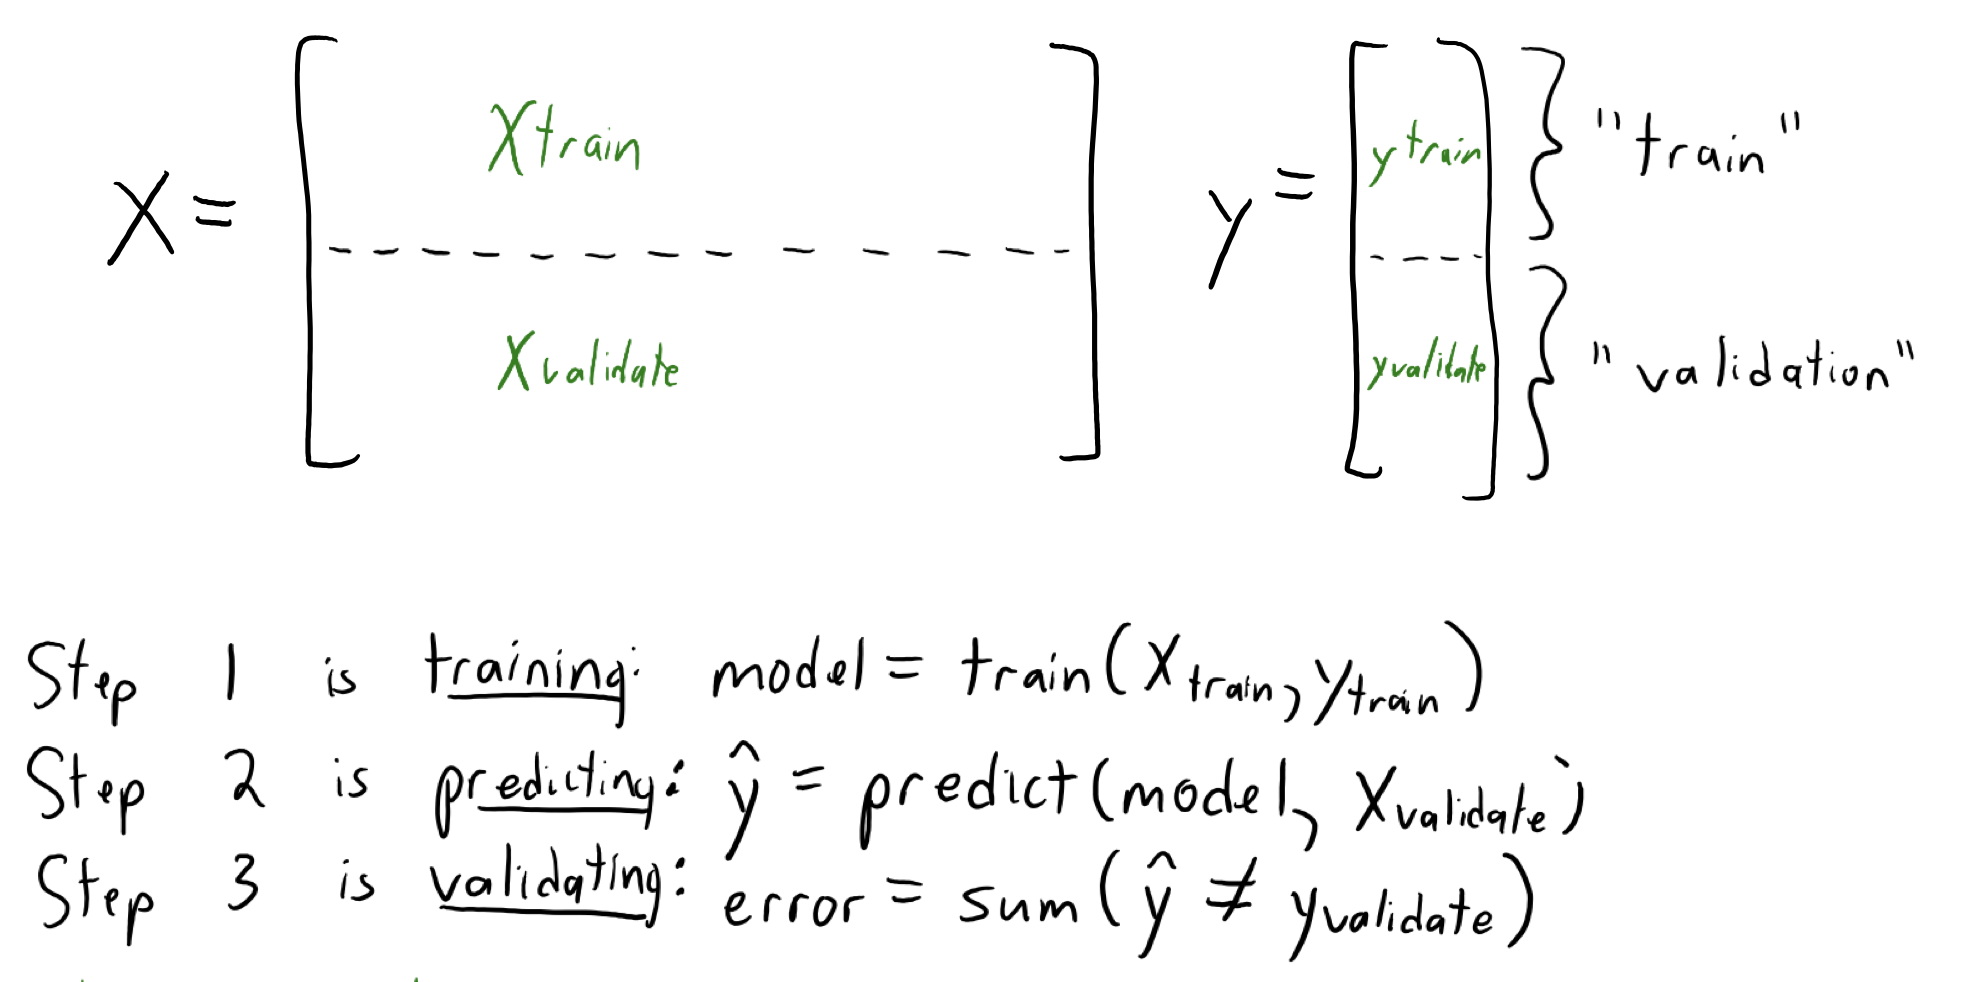 X = [ Xtrain y = [ ytrain ] } "train"
Xvalidate ] yvalidate } "validation"
Step 1 is training: model = train(Xtrain, ytrain)
Step 2 is predicting: ŷ = predict(model, Xvalidate)
Step 3 is validating: error = sum(ŷ ≠ yvalidate)